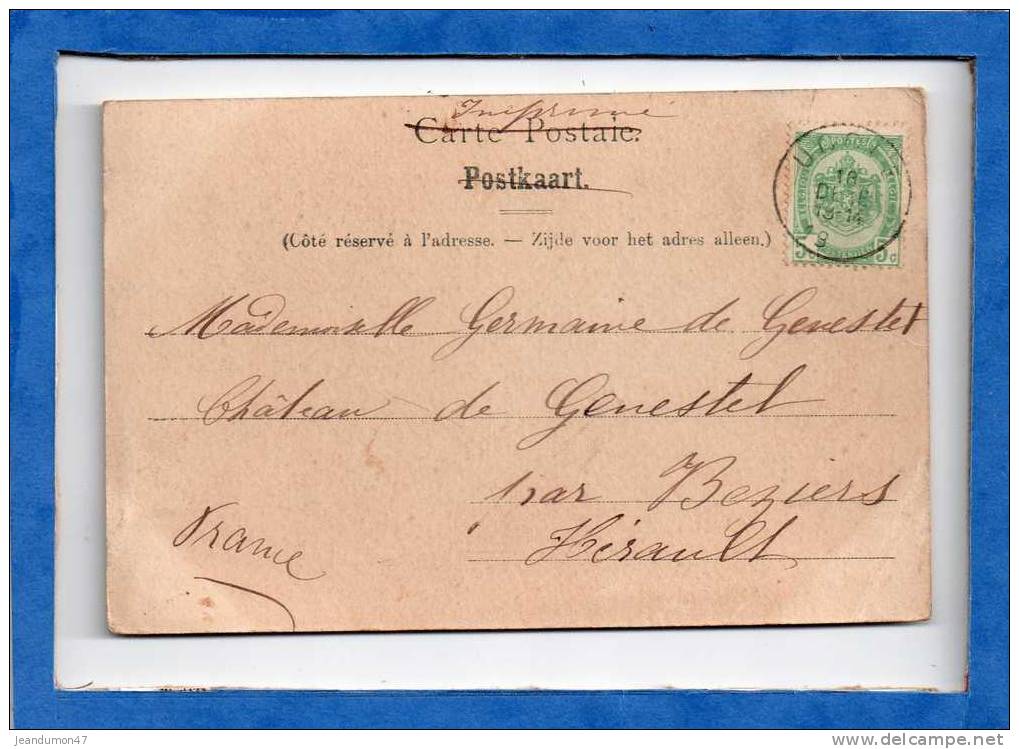 Imprimé
Carte Postale.
Postkaart.
(Côté réservé à l'adresse. — Zijde voor het adres alleen.)
5c 5c
Mademoiselle Germaine de Genestet
Château de Genestet
par Beziers
Hérault
France
jeandumon47
www.delcampe.net